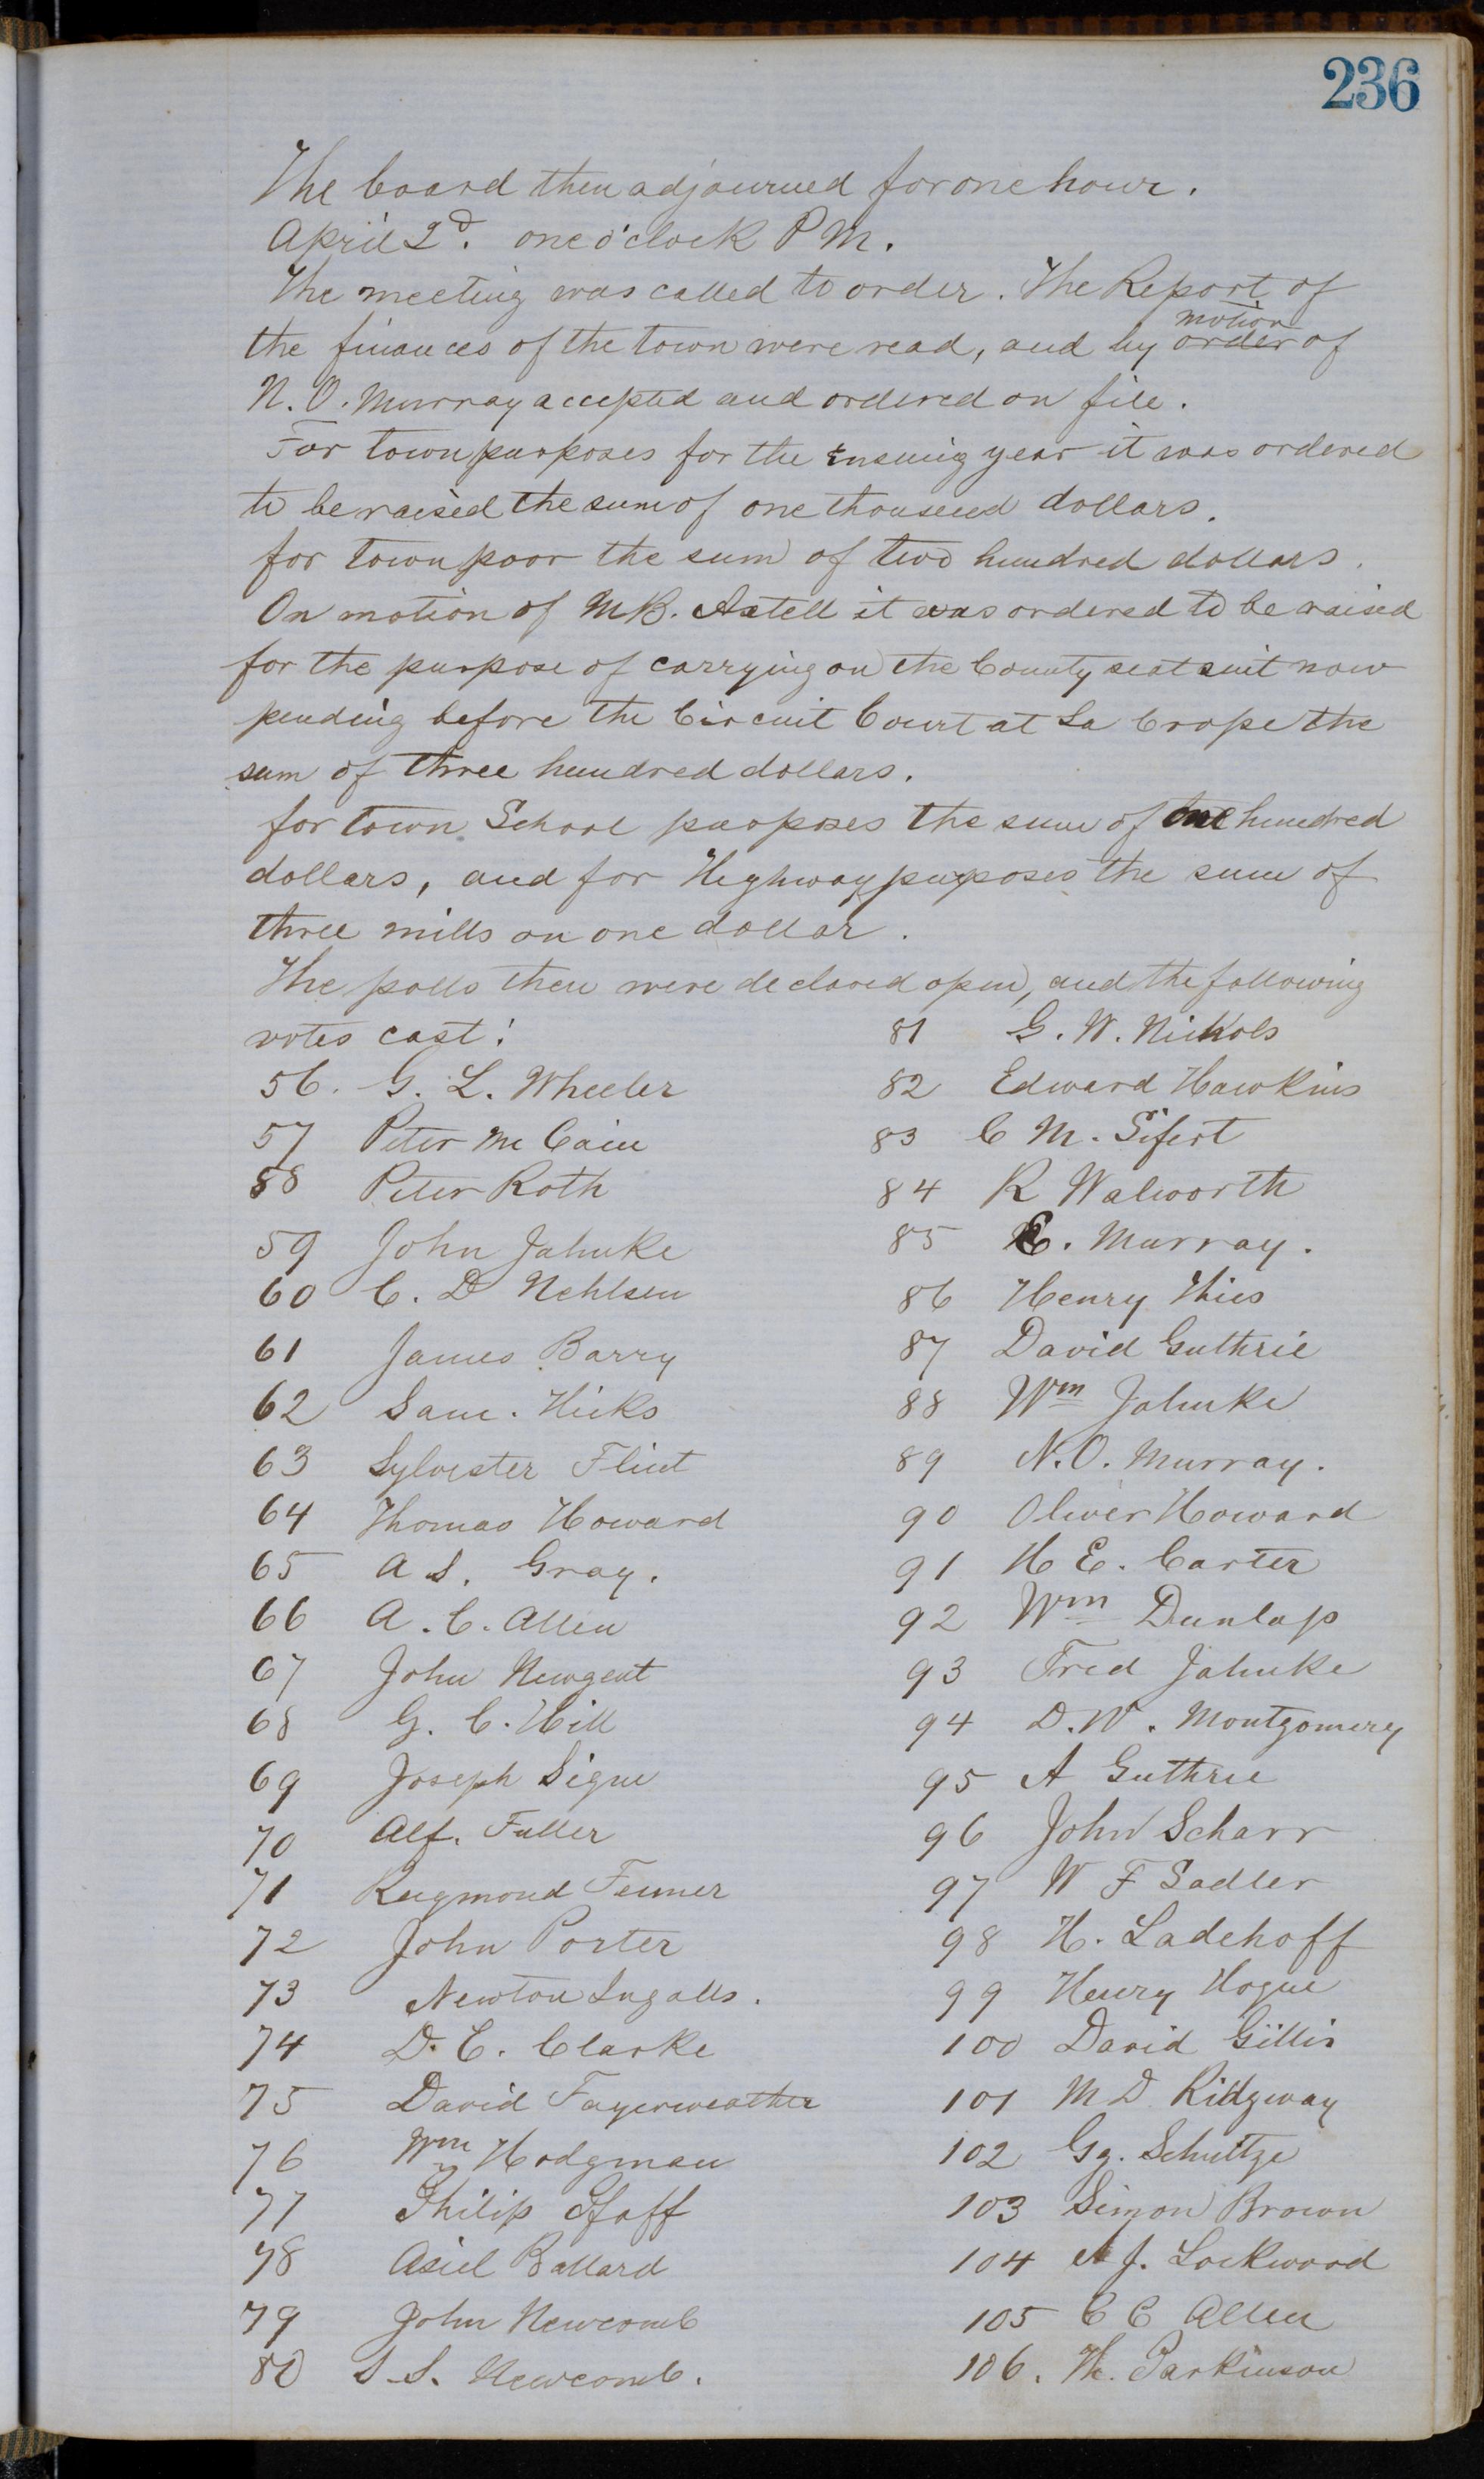 236
The board then adjourned for one hour.
April 2d. one o'clock P M.
The meeting was called to order. The Report of
the finances of the town were read, and by order motion of
N. O. Murray accepted and ordered on file.
For town purposes for the ensuing year it was ordered
to be raised the sum of one thousend dollars.
for town poor the sum of two hundred dollars.
On motion of M B. Axtell it was ordered to be raised
for the purpose of carrying on the County seat suit now
pending before the Circuit Court at La Crosse the
sum of three hundred dollars.
for town School purposes the sum of one hundred
dollars, and for Highway purposes the sum of
three mills on one dollar.
The polls then were declared open, and the following
votes cast:
56. G. L. Wheeler
57 Peter Mc Cain
58 Peter Roth
59 John Jahnke
60 C. D Nehlsen
61 James Barry
62 Sam. Hicks
63 Sylvester Flint
64 Thomas Howard
65 A S. Gray.
66 A. C. Allen
67 John Newgent
68 G. C. Hill
69 Joseph Signe
70 Alf. Fuller
71 Raymond Fenner
72 John Porter
73 Newton Ingalls.
74 D. C. Clarke
75 David Fayerweather
76 Wm Hodgman
77 Philip Pfaff
78 Asiel Ballard
79 John Newcomb
80 S S. Newcomb.
81 G. W. Nichols
82 Edward Hawkins
83 C M. Sifert
84 R Walworth
85 E. Murray.
86 Henry Thies
87 David Guthrie
88 Wm Jahnke
89 N. O. Murray.
90 Oliver Howard
91 H E. Carter
92 Wm Dunlap
93 Fred Jahnke
94 D. W. Montgomery
95 A Guthrie
96 John Scharr
97 W F Sadler
98 H. Ladehoff
99 Henry Hogue
100 David Gillis
101 M D Ridgway
102 Gg. Schultze
103 Simon Brown
104 A J. Lockwood
105 C C Allen
106. Th. Parkinson